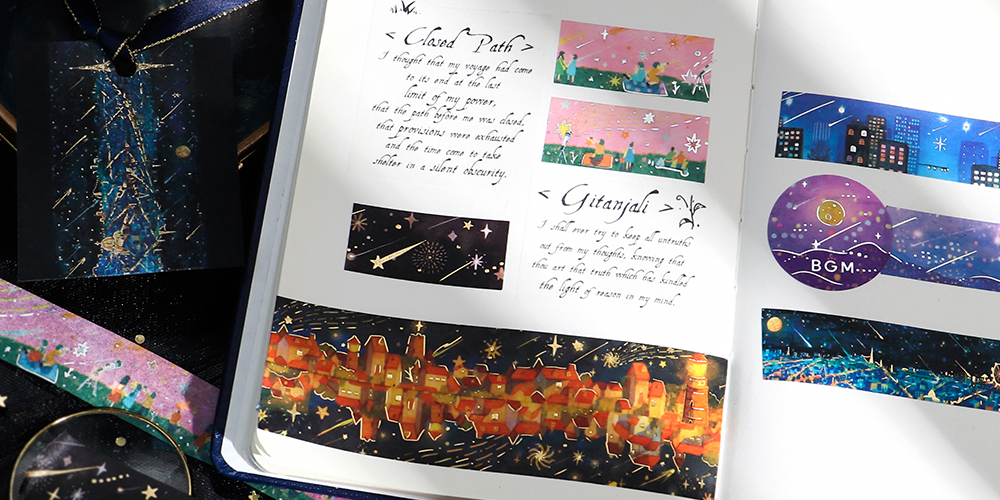 < Closed Path >
I thought that my voyage had come
to its end at the last
limit of my power,
that the path before me was closed,
that provisions were exhausted
and the time come to take
shelter in a silent obscurity.
< Gitanjali >
I shall ever try to keep all untruths
out from my thoughts, knowing that
thou art that truth which has kindled
the light of reason in my mind.
BGM